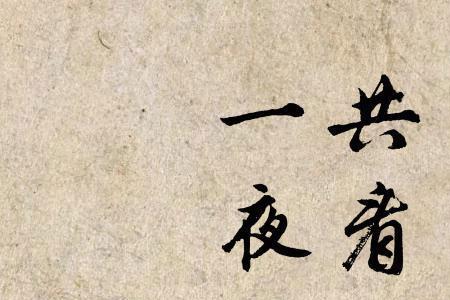 共看
一夜